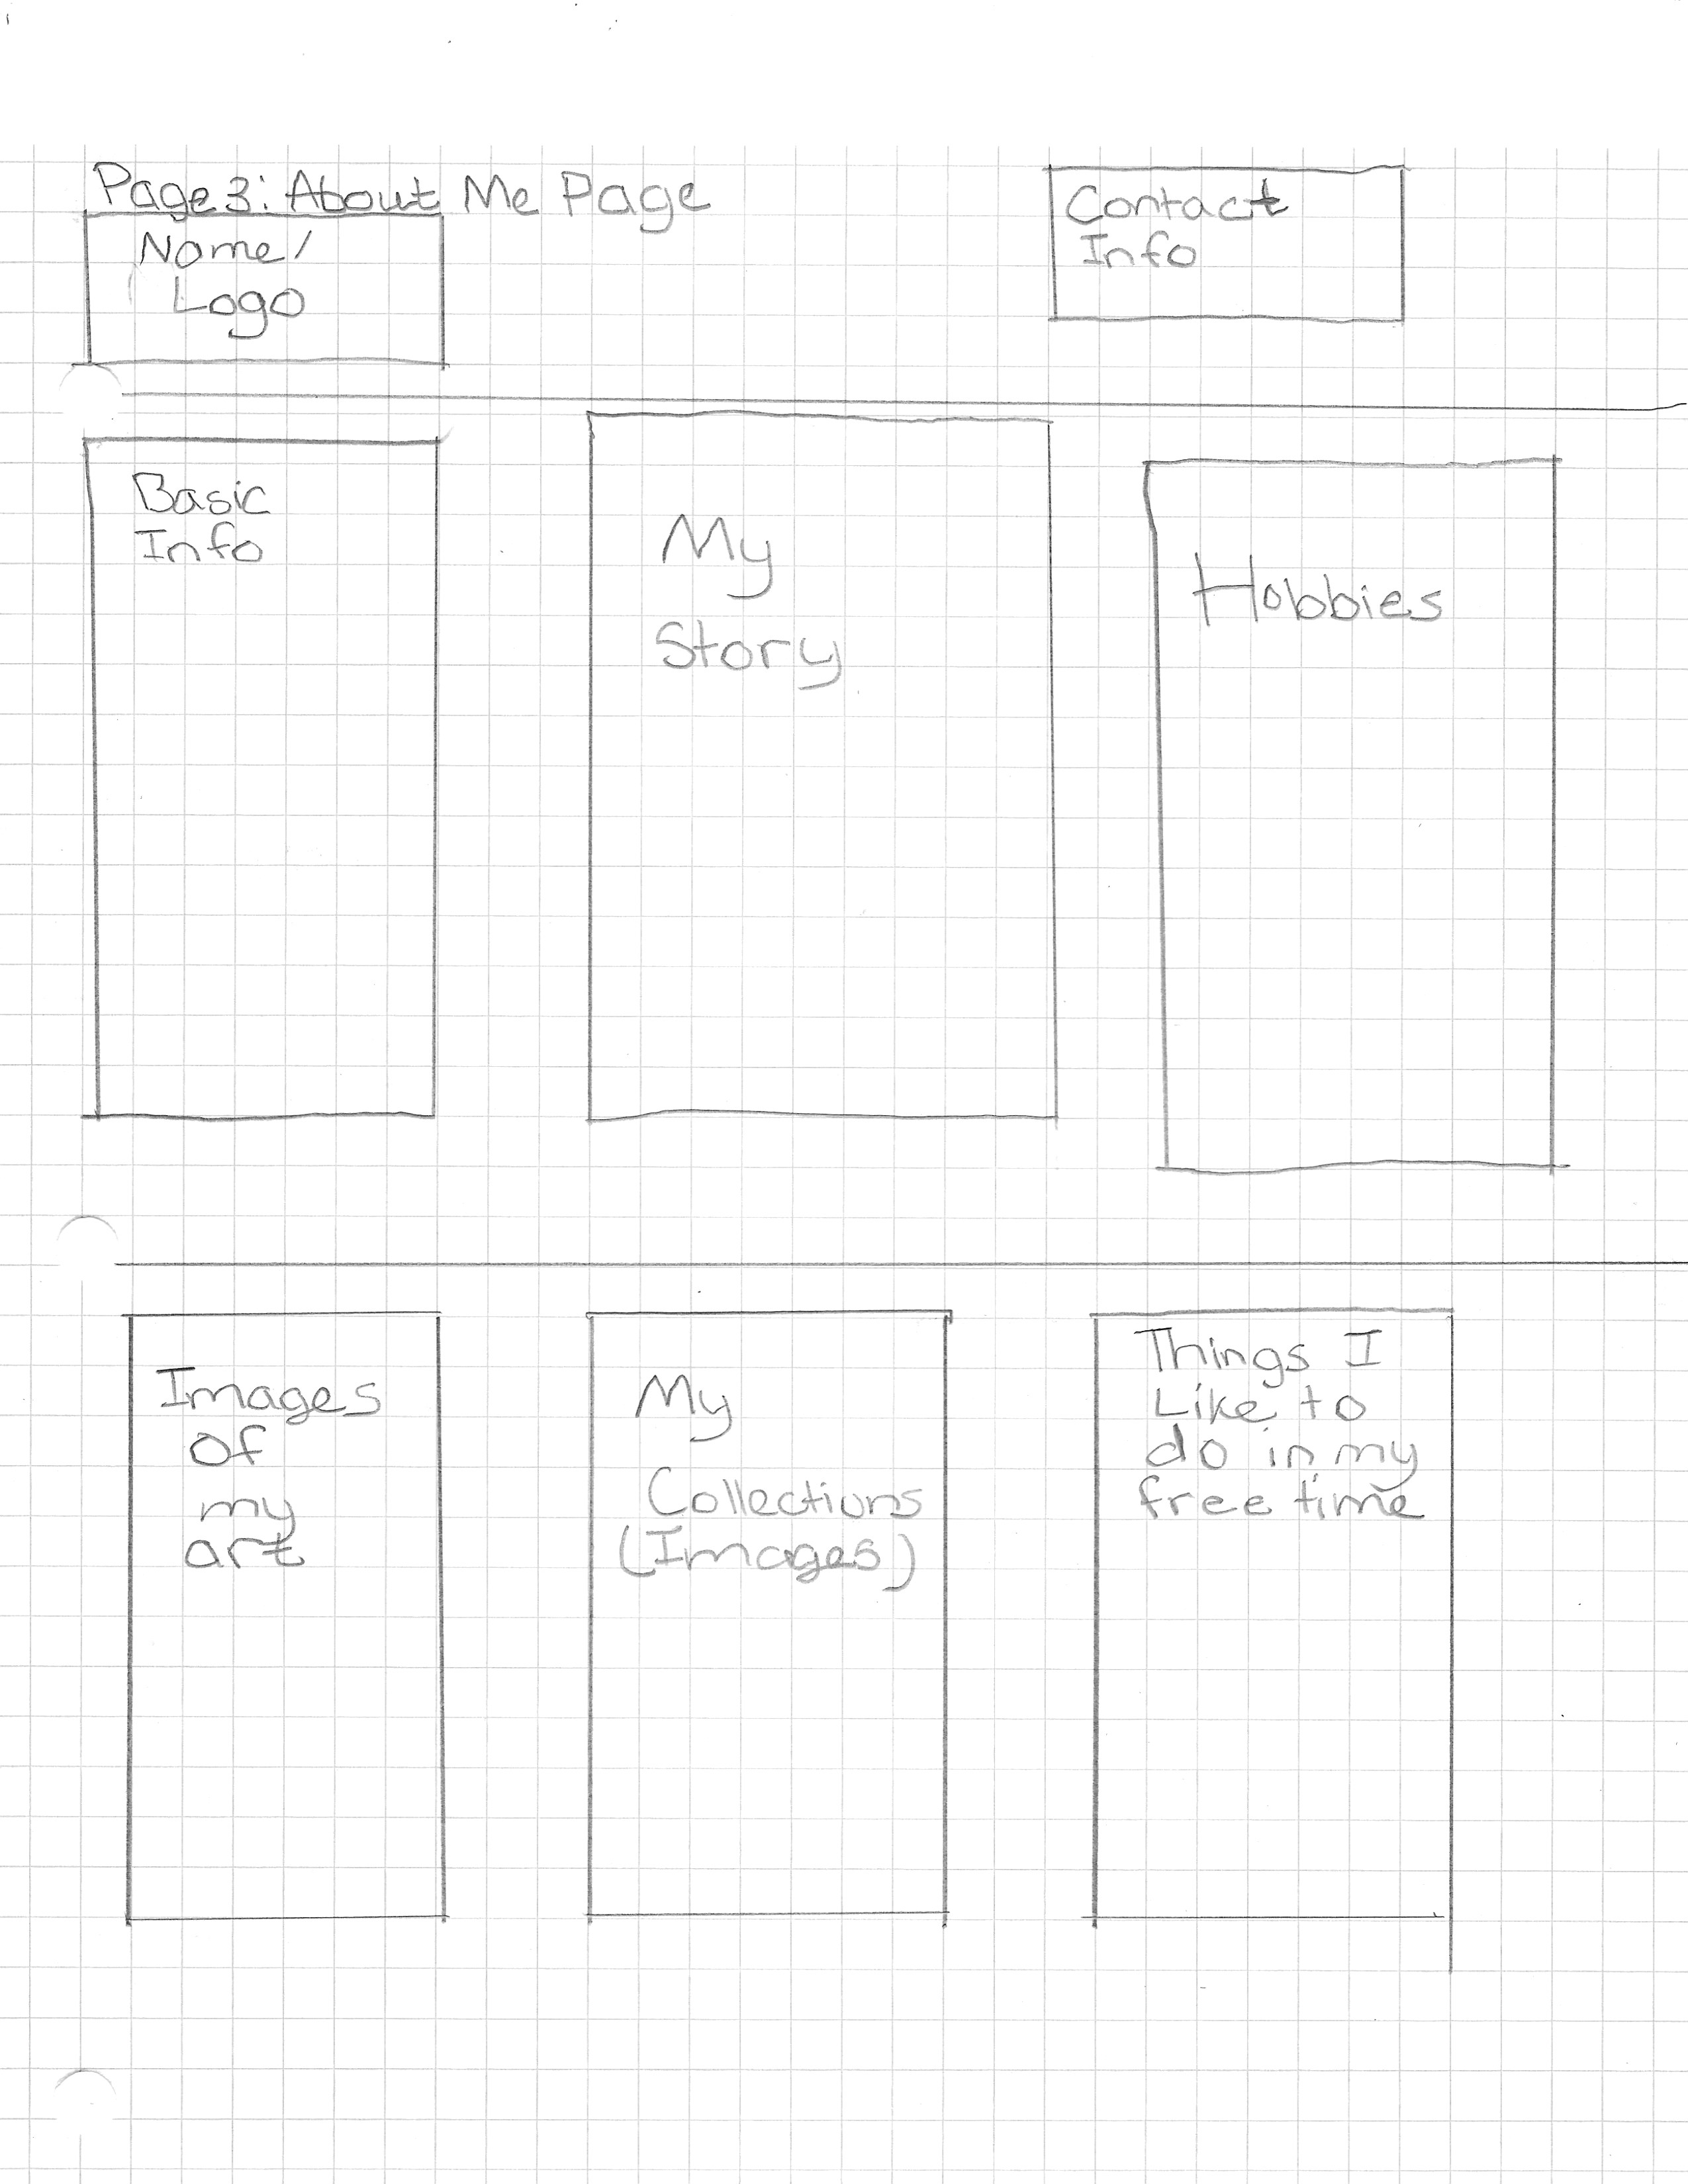 Page 3: About Me Page
Name/
Logo
Contact
Info
Basic
Info
My
Story
Hobbies
Images
Of
my
art
My
Collections
(Images)
Things I
Like to
do in my
free time